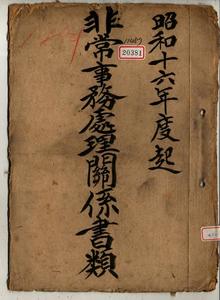 昭和十六年度起
非常事務處理關係書類
11457
20381